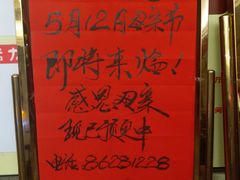 5月12日母亲节
即将来临!
感恩母亲
现已预定中
电话:86281228